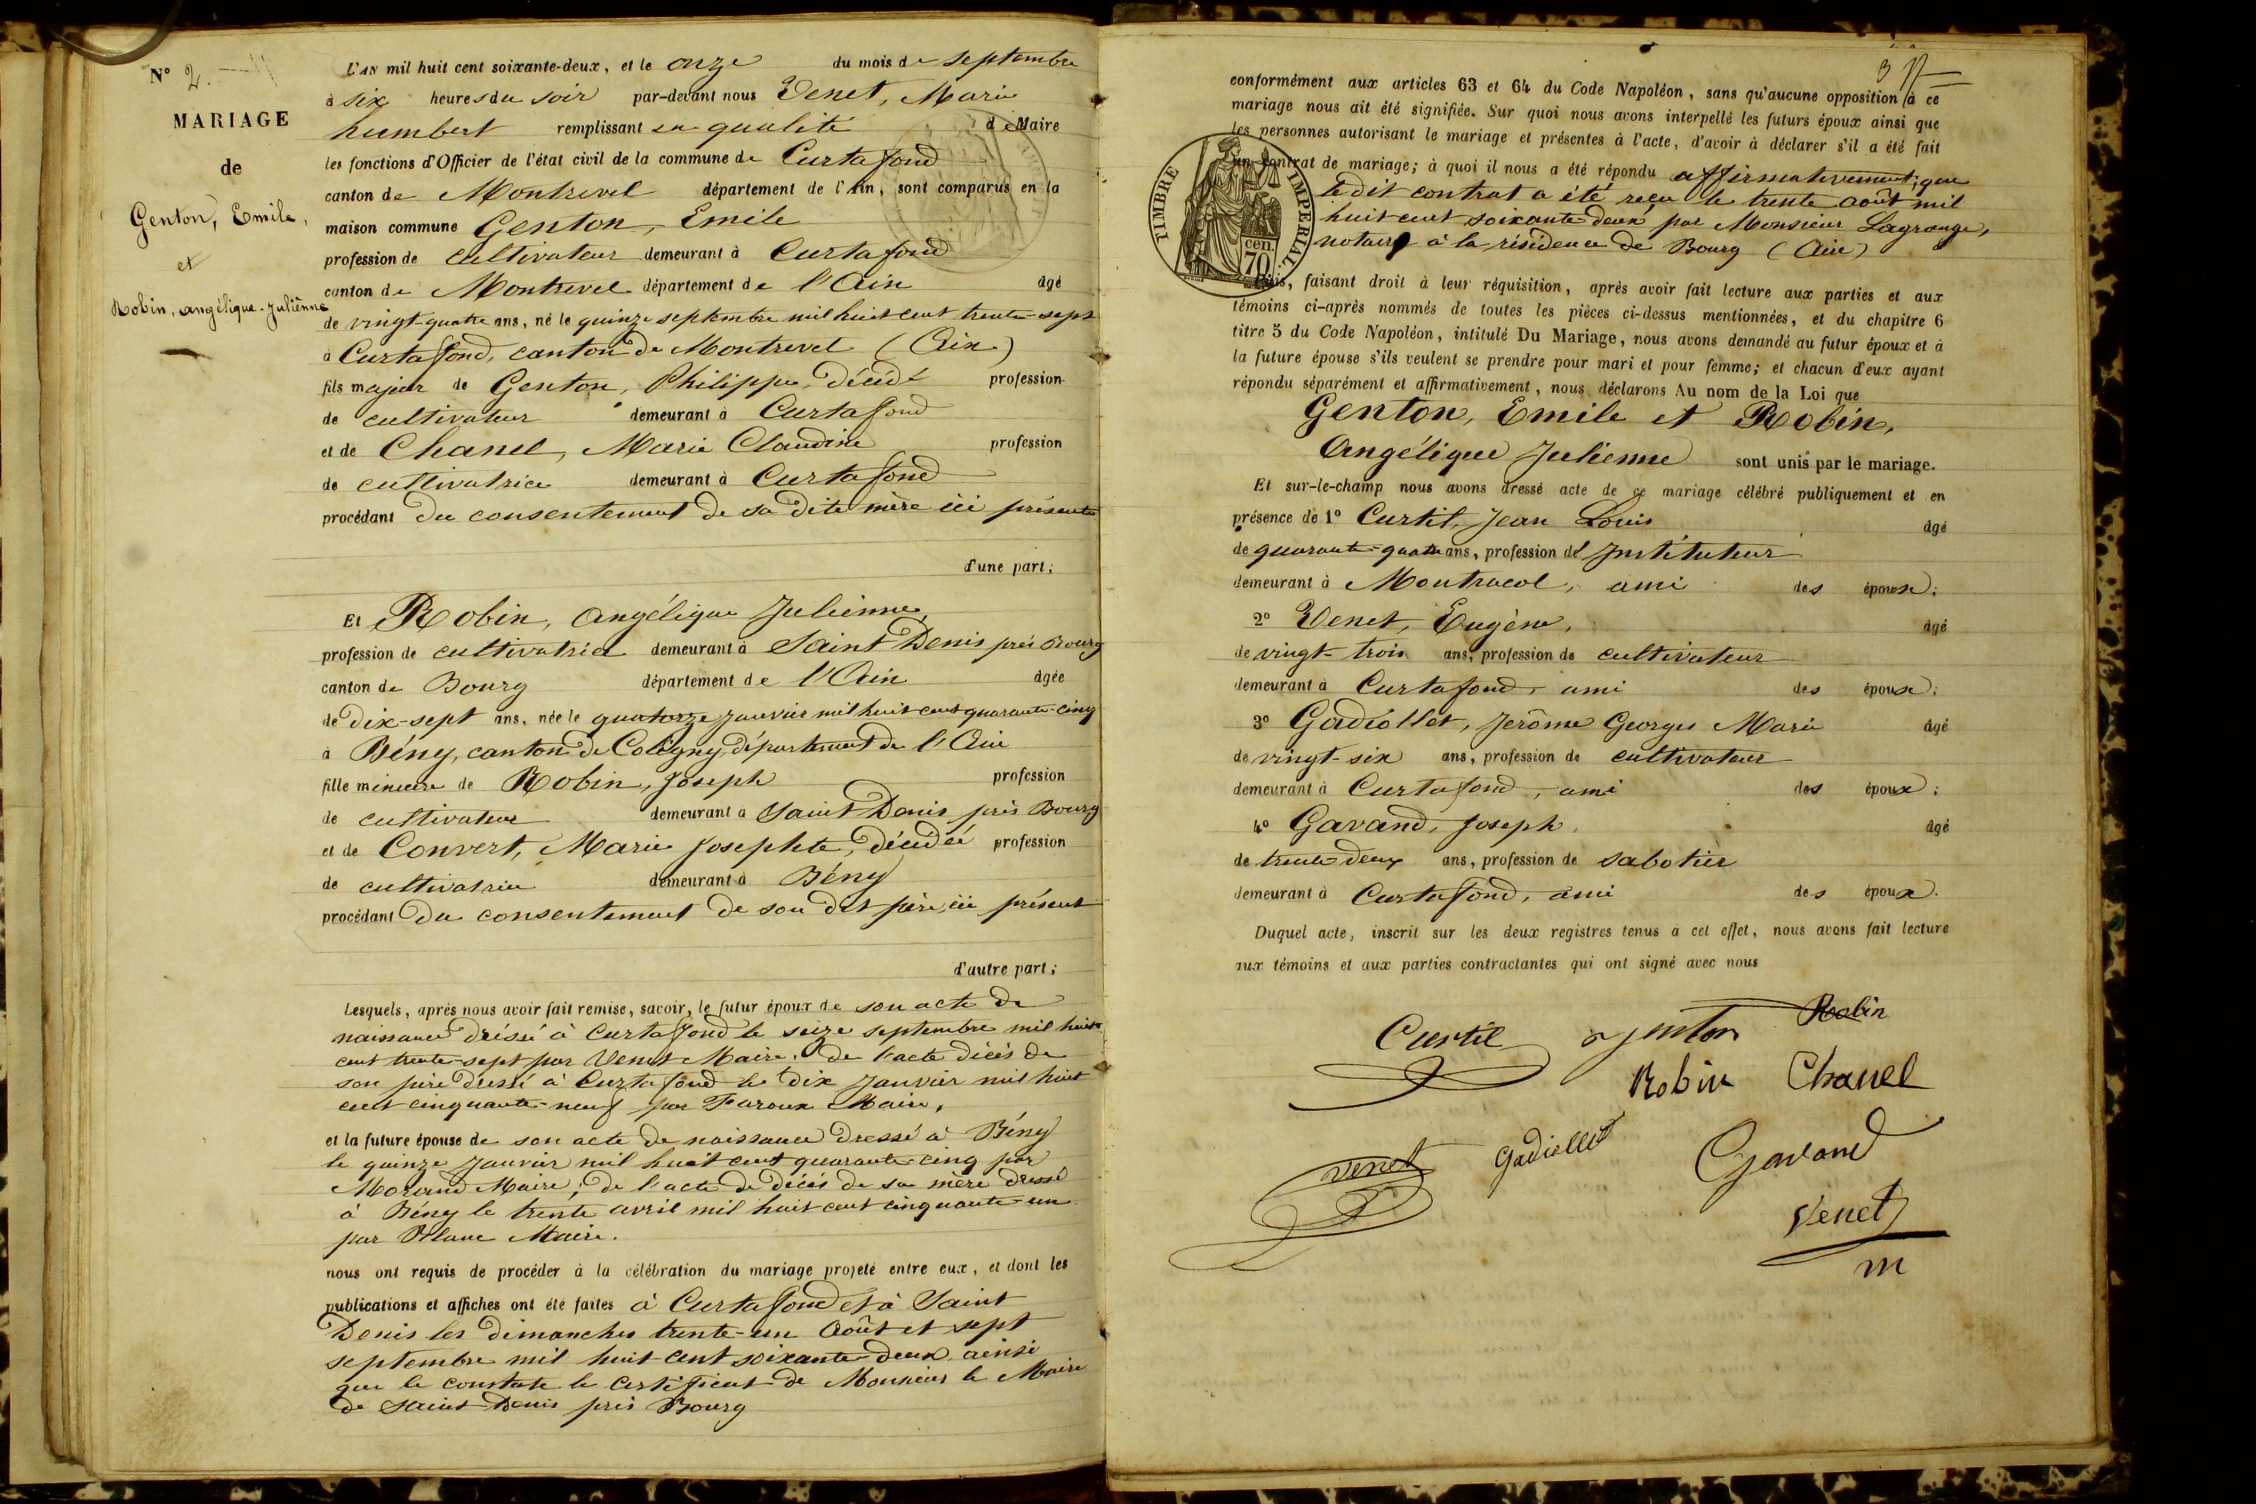 N° 2.
MARIAGE
de
Genton, Emile,
et
Robin, angélique-Juliènne
L'AN mil huit cent soixante-deux, et le onze du mois de septembre
à six heures du soir par-devant nous Venet, Marie
humbert remplissant en qualité de Maire
les fonctions d'Officier de l'état civil de la commune de Curtafond
canton de Montrevel département de l'Ain, sont comparus en la
maison commune Genton, Emile
profession de cultivateur demeurant à Curtafond
canton de Montrevel département de l'Ain âgé
de vingt-quatre ans, né le quinze septembre mil huit cent trente-sept
à Curtafond, canton de Montrevel (Ain)
fils majeur de Genton, Philippe, décédé profession
de cultivateur demeurant à Curtafond
et de Chanel, Marie Claudine profession
de cultivatrice demeurant à Curtafond
procédant du consentement de sa dite mère ici présente
d'une part;
Et Robin, Angélique Julienne,
profession de cultivatrice demeurant à Saint Denis près Bourg
canton de Bourg département de l'Ain âgée
de dix-sept ans, née le quatorze janvier mil huit cent quarante-cinq
à Bény, canton de Coligny, département de l'Ain
fille mineure de Robin, Joseph profession
de cultivateur demeurant à Saint Denis près Bourg
et de Convert, Marie Josephte, décédée profession
de cultivatrice demeurant à Bény
procédant du consentement de son dit père, ici présent
d'autre part;
Lesquels, après nous avoir fait remise, savoir, le futur époux de son acte de
naissance dréssé à Curtafond le seize septembre mil huit
cent trente-sept par Venet Maire. de l'acte décès de
son père dressé à Curtafond le dix Janvier mil huit
cent cinquante-neuf par Faroux Maire,
et la future épouse de son acte de naissance dressé à Bény
le quinze Janvier mil huit cent quarante-cinq par
Morand Maire; de l'acte de décès de sa mère dressé
à Bény le trente avril mil huit cent cinquante-un
par Maire.
nous ont requis de procéder à la célébration du mariage projeté entre eux, et dont les
publications et affiches ont été faites à Curtafond et à Saint
Denis les dimanches trente-un Août et sept
septembre mil huit cent soixante-deux, ainsi
que le constate le certificat de Monsieur le Maire
de Saint Denis près Bourg
conformément aux articles 63 et 64 du Code Napoléon, sans qu'aucune opposition à ce
mariage nous ait été signifiée. Sur quoi nous avons interpellé les futurs époux ainsi que
les personnes autorisant le mariage et présentes à l'acte, d'avoir à déclarer s'il a été fait
un contrat de mariage; à quoi il nous a été répondu affirmativement; que
le dit contrat a été reçu le trente août mil
huit cent soixante deux par Monsieur Lagrange,
notaire à la résidence de Bourg (Ain)
TIMBRE IMPERIAL.
70 cen.
Puis, faisant droit à leur réquisition, après avoir fait lecture aux parties et aux
témoins ci-après nommés de toutes les pièces ci-dessus mentionnées, et du chapitre 6
titre 5 du Code Napoléon, intitulé Du Mariage, nous avons demandé au futur époux et à
la future épouse s'ils veulent se prendre pour mari et pour femme; et chacun d'eux ayant
répondu séparément et affirmativement, nous déclarons Au nom de la Loi que
Genton, Emile et Robin,
Angélique Julienne sont unis par le mariage.
Et sur-le-champ nous avons dressé acte de ce mariage célébré publiquement et en
présence de 1° Curtil, Jean Louis âgé
de quarante-quatre ans, profession de Instituteur
demeurant à Montracol, ami des époux;
2° Venet, Eugène, âgé
de vingt-trois ans, profession de cultivateur
demeurant à Curtafond, ami des époux;
3° Gadiollet, Jerôme Georges Marie âgé
de vingt-six ans, profession de cultivateur
demeurant à Curtafond, ami des époux;
4° Gavand, Joseph, âgé
de trente-deux ans, profession de sabotier
demeurant à Curtafond, ami des époux.
Duquel acte, inscrit sur les deux registres tenus à cet effet, nous avons fait lecture
aux témoins et aux parties contractantes qui ont signé avec nous
Curtil genton Robin
Robin Chanel
Venet Gadiollet Gavand
Venet
m